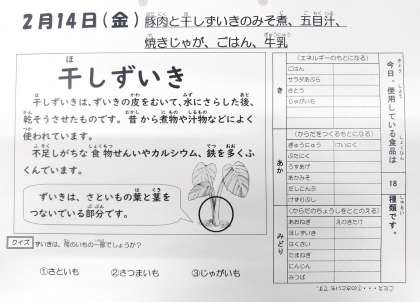 2月14日(金) 豚肉と干しずいきのみそ煮、五目汁、
焼きじゃが、ごはん、牛乳
干しずいき
干しずいきは、ずいきの皮をむいて、水にさらした後、
乾そうさせたものです。昔から煮物や汁物などによく
使われています。
不足しがちな食物せんいやカルシウム、鉄を多くふ
くんでいます。
ずいきは、さといもの葉と茎を
つないでいる部分です。
クイズ ずいきは、何のいもの一部でしょうか?
①さといも ②さつまいも ③じゃがいも
今日、使用している食品は
18
種類です。
き
(エネルギーのもとになる)
ごはん
サラダあぶら
さとう
じゃがいも
あか
(からだをつくるもとになる)
ぎゅうにゅう けいにく
ぶたにく
うすあげ
あかみそ
だしこんぶ
けずりぶし
みどり
(からだのちょうしをととのえる)
あおねぎ えのきたけ
ほしずいき
はくさい
たまねぎ
にんじん
みつば